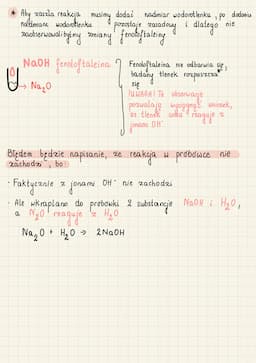 Aby zaszła reakcja musimy dodać nadmiar wodorotlenku, po dodaniu
nadmiaru wodorotlenku pozostaje zasadowy i dlatego nie
zaobserwowalibyśmy zmiany fenoloftaleiny
NaOH fenoloftaleina
→ Na₂O
Fenoloftaleina nie odbarwia się,
badany tlenek rozpuszcza
się
!UWAGA! Ta obserwacja
pozwala wyciągnąć wniosek,
że tlenek reaguje z
jonami OH⁻
Błędem będzie napisanie, że reakcja w probówce nie
zachodzi, bo!
· Faktycznie z jonami OH⁻ nie zachodzi
· Ale wkraplano do probówki 2 substancje NaOH i H₂O,
a N₂O reaguje z H₂O
Na₂O + H₂O → 2NaOH